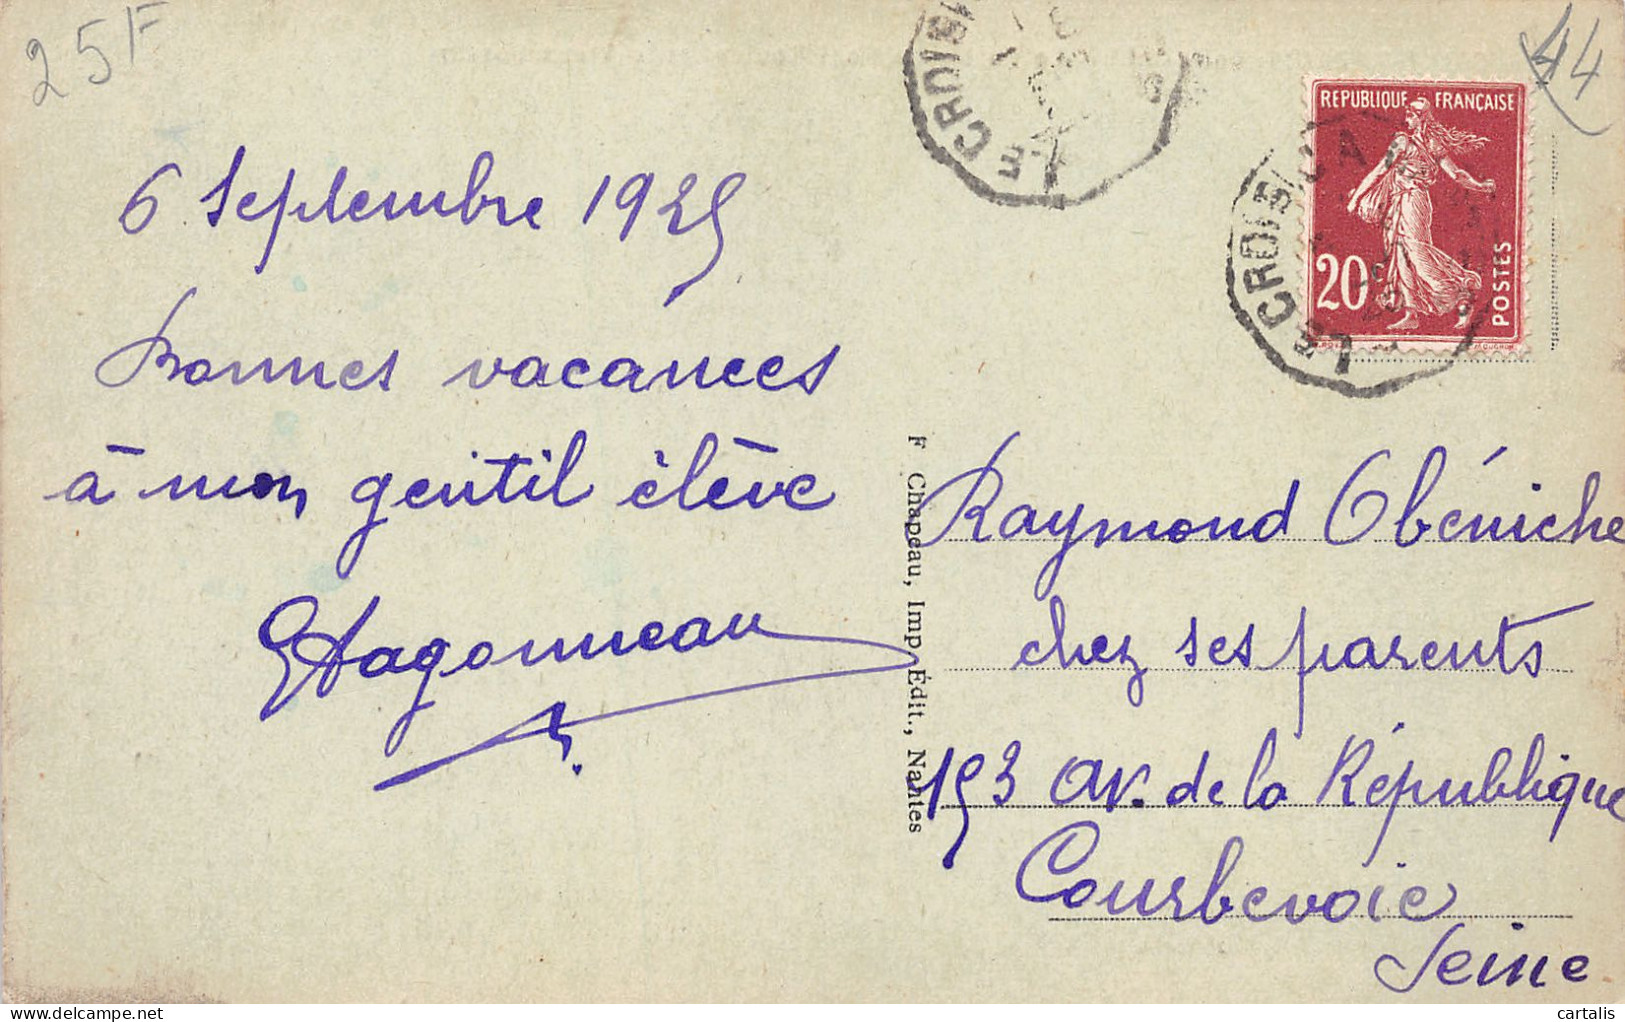 25F
44
LE CROISIC
RÉPUBLIQUE FRANÇAISE
20
POSTES
LE CROISIC
6 Septembre 1925
Bonnes vacances
à mon gentil élève
F. Chapeau, Imp. Édit., Nantes
Raymond Obéniche
chez ses parents
193 av. de la République
Courbevoie
Seine
delcampe.net
cartalis